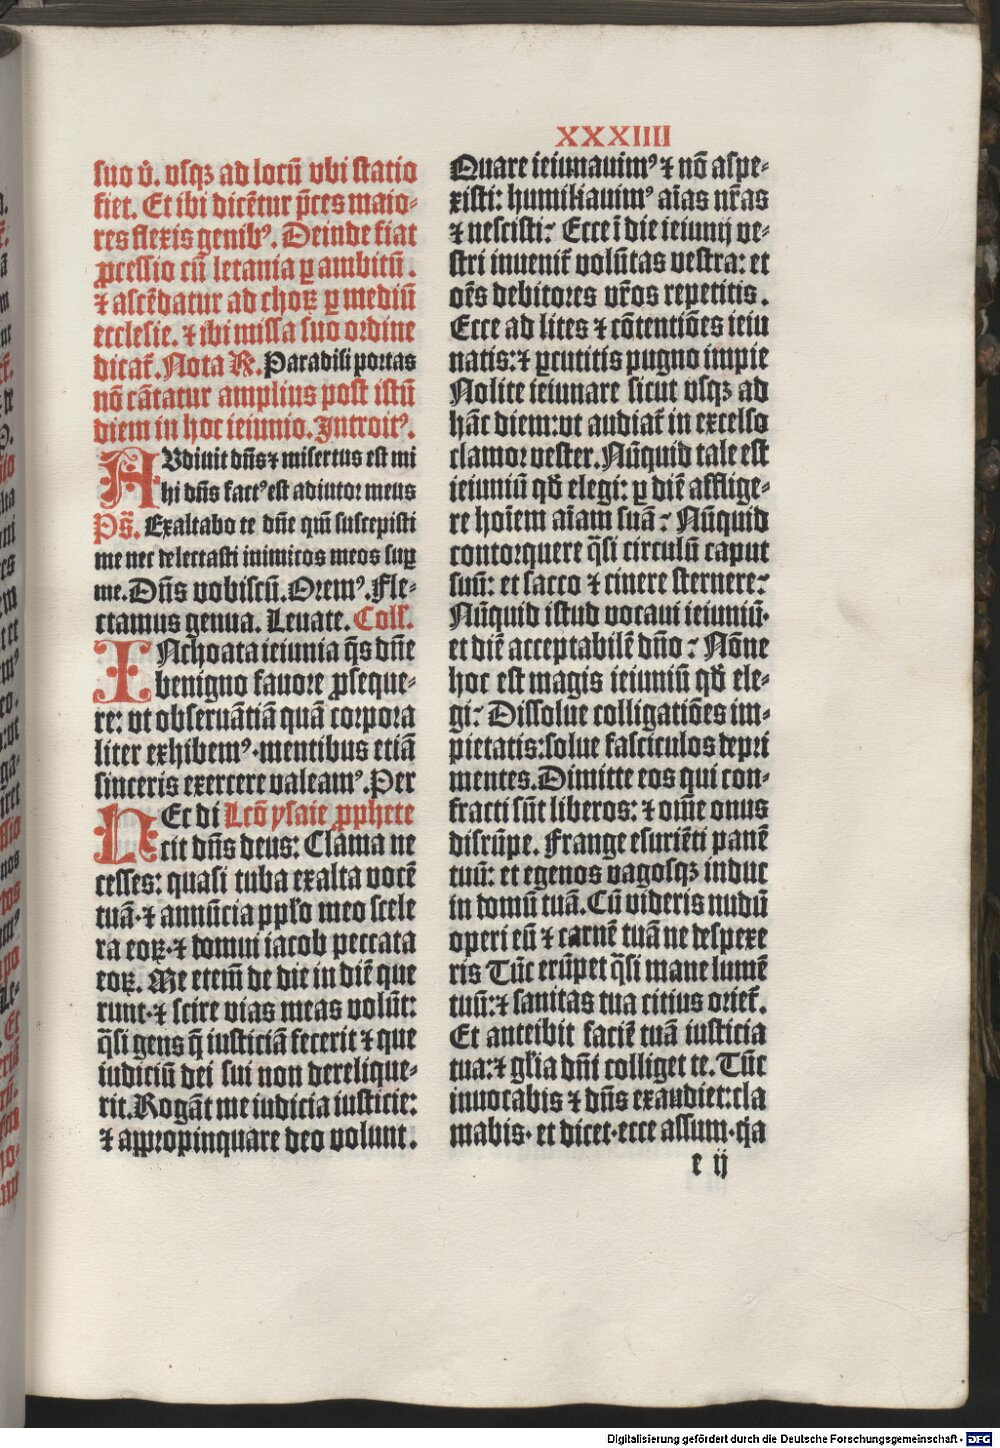 XXXIIII
suo ů. vsqꝫ ad locū vbi statio
fiet. Et ibi dicẽtur p̄ces maio⸗
res flexis genibꝰ. Deinde fiat
ꝓcessio cū letania ꝑ ambitū.
⁊ ascẽdatur ad choꝝ ꝑ mediū
ecclesie. ⁊ ibi missa suo ordine
dicat̄. Nota ℟. Paradisi portas
nō cātatur amplius post istū
diem in hoc ieiunio. Introitꝰ.
AVdiuit dn̄s ⁊ misertus est mi
hi dn̄s factꝰ est adiutor meus
Ps̄. Exaltabo te dn̄e qm̄ suscepisti
me nec delectasti inimicos meos suꝑ
me. Dn̄s vobiscū. Oremꝰ. Fle⸗
ctamus genua. Leuate. Coll̄.
INchoata ieiunia q̄s dn̄e
benigno fauore ꝓseque⸗
re: vt obseruātiā quā corpora
liter exhibemꝰ·mentibus etiā
sinceris exercere valeamꝰ. Per
HEc di Lcō ysaie ꝓphete
cit dn̄s deus: Clama ne
cesses: quasi tuba exalta vocē
tuā·⁊ annūcia ppl̄o meo scele
ra eoꝝ·⁊ domui iacob peccata
eoꝝ. Me etem̄ de die in diē que
runt·⁊ scire vias meas volūt:
q̄si gens q̄ iusticiā fecerit ⁊ que
iudiciū dei sui non derelique⸗
rit. Rogāt me iudicia iusticie:
⁊ appropinquare deo volunt.
Quare ieiunauimꝰ ⁊ nō aspe⸗
xisti: humiliauimꝰ aīas nr̄as
⁊ nescisti: Ecce ī die ieiunij ve⸗
stri inuenit̄ volūtas vestra: et
oēs debitores vr̄os repetitis.
Ecce ad lites ⁊ cōtentiōes ieiu
natis: ⁊ ꝑcutitis pugno impie
Nolite ieiunare sicut vsqꝫ ad
hāc diem: vt audiat̄ in excelso
clamor vester. Nūquid tale est
ieiuniū qd̄ elegi: ꝑ diē afflige⸗
re hoīem aīam suā: Nūquid
contorquere q̄si circulū caput
suū: et sacco ⁊ cinere sternere:
Nūquid istud vocaui ieiuniū·
et diē acceptabilē dn̄o: Nōne
hoc est magis ieiuniū qd̄ ele⸗
gi: Dissolue colligatiōes im⸗
pietatis: solue fasciculos depri
mentes. Dimitte eos qui con⸗
fracti sūt liberos: ⁊ om̄e onus
disrūpe. Frange esuriēti panē
tuū: et egenos vagosqꝫ induc
in domū tuā. Cū videris nudū
operi eū ⁊ carnē tuā ne despexe
ris Tūc erūpet q̄si mane lumē
tuū: ⁊ sanitas tua citius oriet̄.
Et anteibit faciē tuā iusticia
tua: ⁊ gl̄ia dn̄i colliget te. Tūc
inuocabis ⁊ dn̄s exaudiet: cla
mabis· et dicet· ecce assum· q̇a
e ij
Digitalisierung gefördert durch die Deutsche Forschungsgemeinschaft - DFG